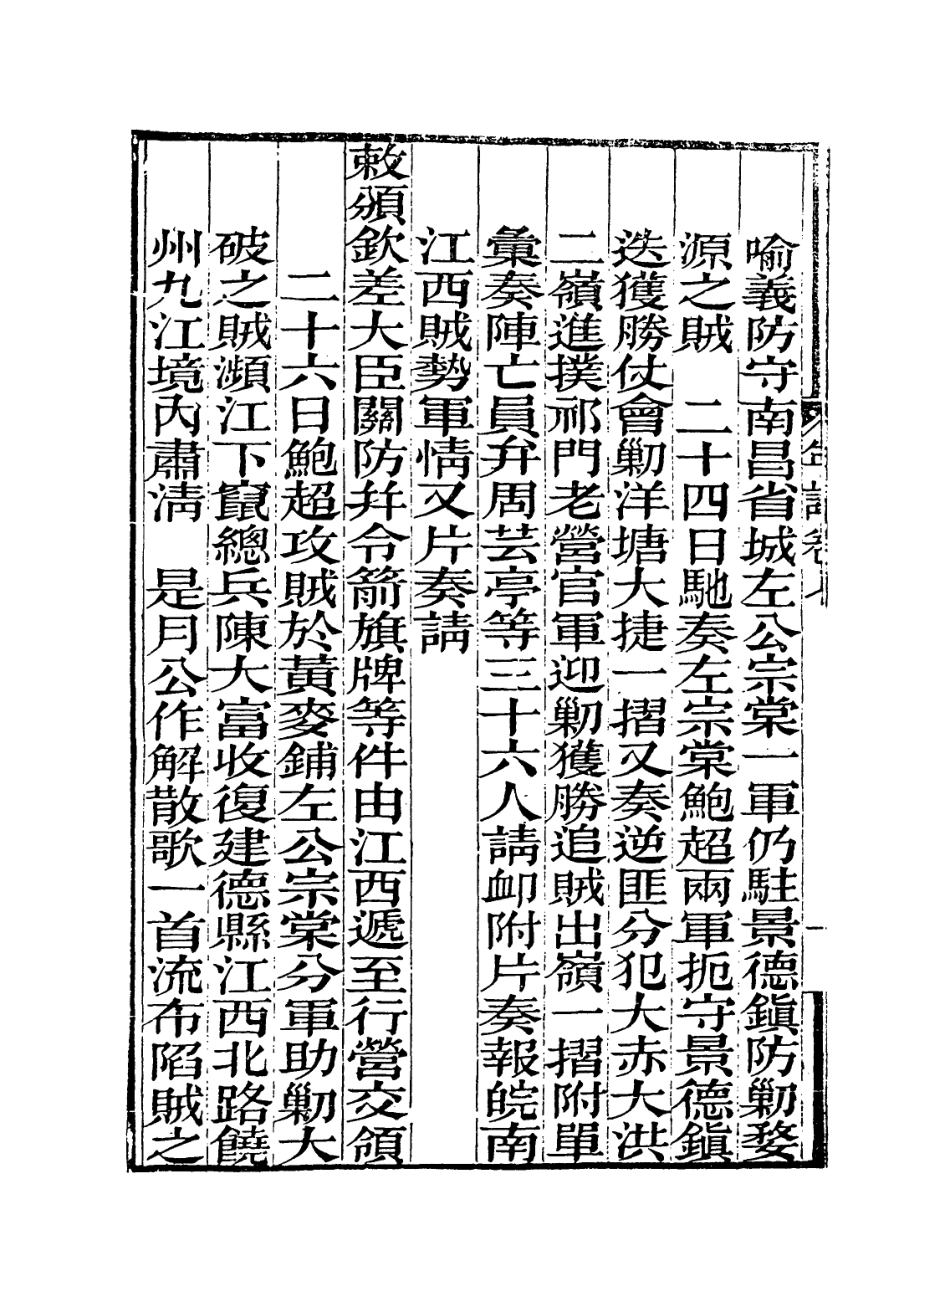 喻義防守南昌省城左公宗棠一軍仍駐景德鎮防勦婺
源之賊　二十四日馳奏左宗棠鮑超兩軍扼守景德鎮
迭獲勝仗會勦洋塘大捷一摺又奏逆匪分犯大赤大洪
二嶺進撲祁門老營官軍迎勦獲勝追賊出嶺一摺附單
彙奏陣亡員弁周芸亭等三十六人請卹附片奏報皖南
江西賊勢軍情又片奏請
敕頒欽差大臣關防幷令箭旗牌等件由江西遞至行營交領
二十六日鮑超攻賊於黃麥鋪左公宗棠分軍助勦大
破之賊瀕江下竄總兵陳大富收復建德縣江西北路饒
州九江境內肅清　是月公作解散歌一首流布陷賊之